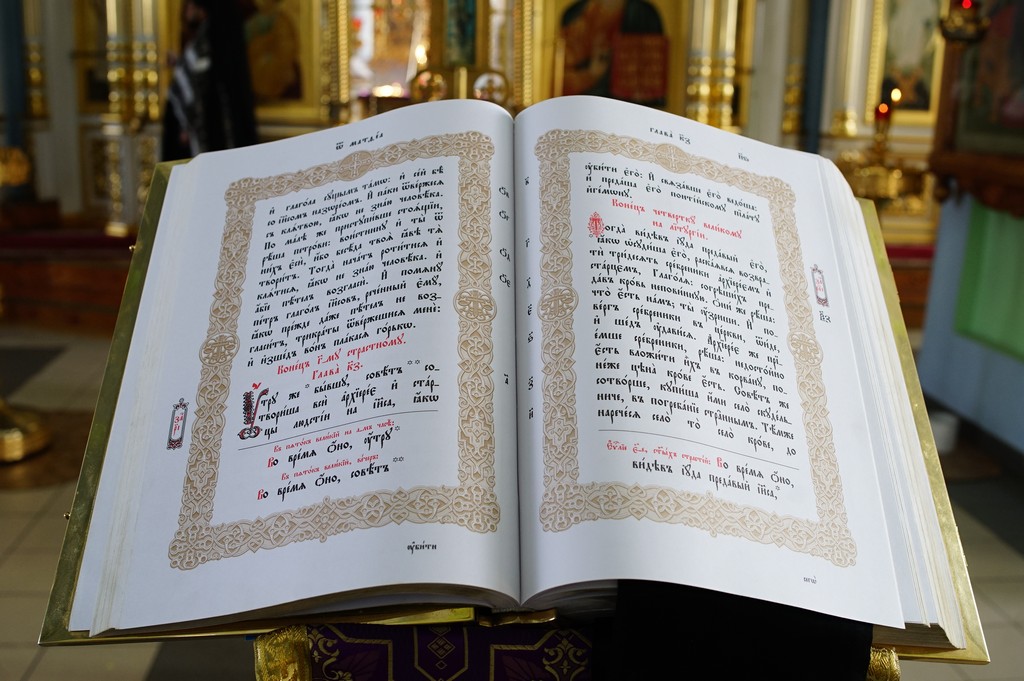 Ѿ матѳе́а
и҆ глаго́ла сꙋ́щымъ та́мѡ: и҆ се́й бѣ̀
со і҆и҃сомъ назѡре́омъ. И҆ па́ки ѿве́ржесѧ
съ клѧ́твою, ꙗ҆́кѡ не зна́ю человѣ́ка.
По ма́лѣ же пристꙋпи́вше стоѧ́щїи,
рѣ́ша петро́ви: вои́стиннꙋ и҆ ты̀ ѿ
ни́хъ є҆сѝ, и҆́бо бесѣ́да твоѧ̀ ꙗ҆́вѣ тѧ̀
твори́тъ. Тогда̀ нача́тъ роти́тисѧ и҆
клѧ́тисѧ, ꙗ҆́кѡ не зна́ю человѣ́ка. и҆
а҆́бїе пѣ́тель возгласѝ. И҆ помѧнꙋ̀
пе́тръ глаго́лъ і҆и҃совъ, рече́нный є҆мꙋ̀,
ꙗ҆́кѡ пре́жде да́же пѣ́тель не воз-
гласи́тъ, трикра́ты ѿве́ржешисѧ менє̀:
и҆ и҆зше́дъ во́нъ пла́касѧ го́рькѡ.
Коне́цъ г҃-мꙋ стра́стномꙋ.
Глава̀ к҃з.
Оу҆́трꙋ же бы́вшꙋ, совѣ́тъ ** со-
твори́ша всѝ а҆рхїере́є и҆ ста́р-
цы лю́дстїи на і҆и҃са, ꙗ҆́кѡ
Въ пѧто́къ вели́кїй на а҃-мъ часѣ̀:
Во вре́мѧ ѻ҆́но, оу҆́трꙋ *
Въ пѧто́къ вели́кїй, ве́черъ:
Во вре́мѧ ѻ҆́но, совѣ́тъ **
оу҆би́ти
Глава̀ к҃з
оу҆би́ти є҆го̀: И҆ свѧза́вше є҆го̀ ведо́ша:
и҆ преда́ша є҆го̀ понті́йскомꙋ пїла́тꙋ
и҆ге́мѡнꙋ.
Коне́цъ четверткꙋ̀ вели́комꙋ
на лїтꙋргі́и.
Тогда̀ ви́дѣвъ і҆ꙋ́да преда́вый є҆го̀,
ꙗ҆́кѡ ѡ҆сꙋди́ша є҆го̀, раска́ѧвсѧ возвра-
тѝ три́десѧть сре́брєники а҆рхїере́ѡмъ и҆
ста́рцємъ, Глаго́лѧ: согрѣши́хъ пре-
да́въ кро́вь непови́ннꙋю. Ѻ҆ни́ же рѣ́ша:
что̀ є҆́сть на́мъ; ты̀ оу҆́зриши. И҆ по-
ве́ргъ сре́брєники въ це́ркви, ѿи́де,
и҆ ше́дъ оу҆дави́сѧ. А҆рхїере́є же прї-
е́мше сре́брєники, рѣ́ша: недосто́йно
є҆́сть вложи́ти и҆̀хъ въ корва́нꙋ, по-
не́же цѣна̀ кро́ве є҆́сть. Совѣ́тъ же
сотво́рше, кꙋпи́ша и҆́ми село̀ скꙋде́ль-
ниче, въ погреба́нїе стра́ннымъ. Тѣ́мже
нарече́сѧ село̀ то̀ село̀ кро́ве, до
Во вре́мѧ ѻ҆́но,
ви́дѣвъ і҆ꙋ́да преда́вый і҆и҃са,*